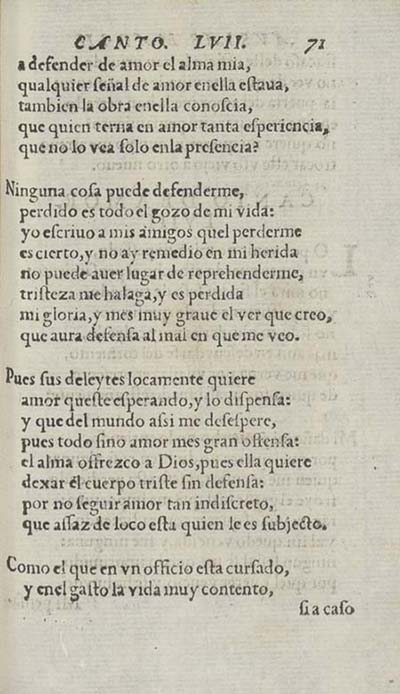 CANTO. LVII. 71
a defender de amor el alma mia,
qualquier señal de amor enella estaua,
tambien la obra enella conoscia,
que quien terna en amor tanta esperiencia,
que no lo vea solo enla presencia?
Ninguna cosa puede defenderme,
perdido es todo el gozo de mi vida:
yo escriuo a mis amigos quel perderme
es cierto, y no ay remedio en mi herida
no puede auer lugar de reprehenderme,
tristeza me halaga, y es perdida
mi gloria, y mes muy graue el ver que creo,
que aura defensa al mal en que me veo.
Pues sus deleytes locamente quiere
amor queste esperando, y lo dispensa:
y que del mundo assi me desespere,
pues todo sino amor mes gran offensa:
el alma offrezco a Dios, pues ella quiere
dexar el cuerpo triste sin defensa:
por no seguir amor tan indiscreto,
que assaz de loco esta quien le es subjecto.
Como el que en vn officio esta cursado,
y enel gasto la vida muy contento,
si a caso